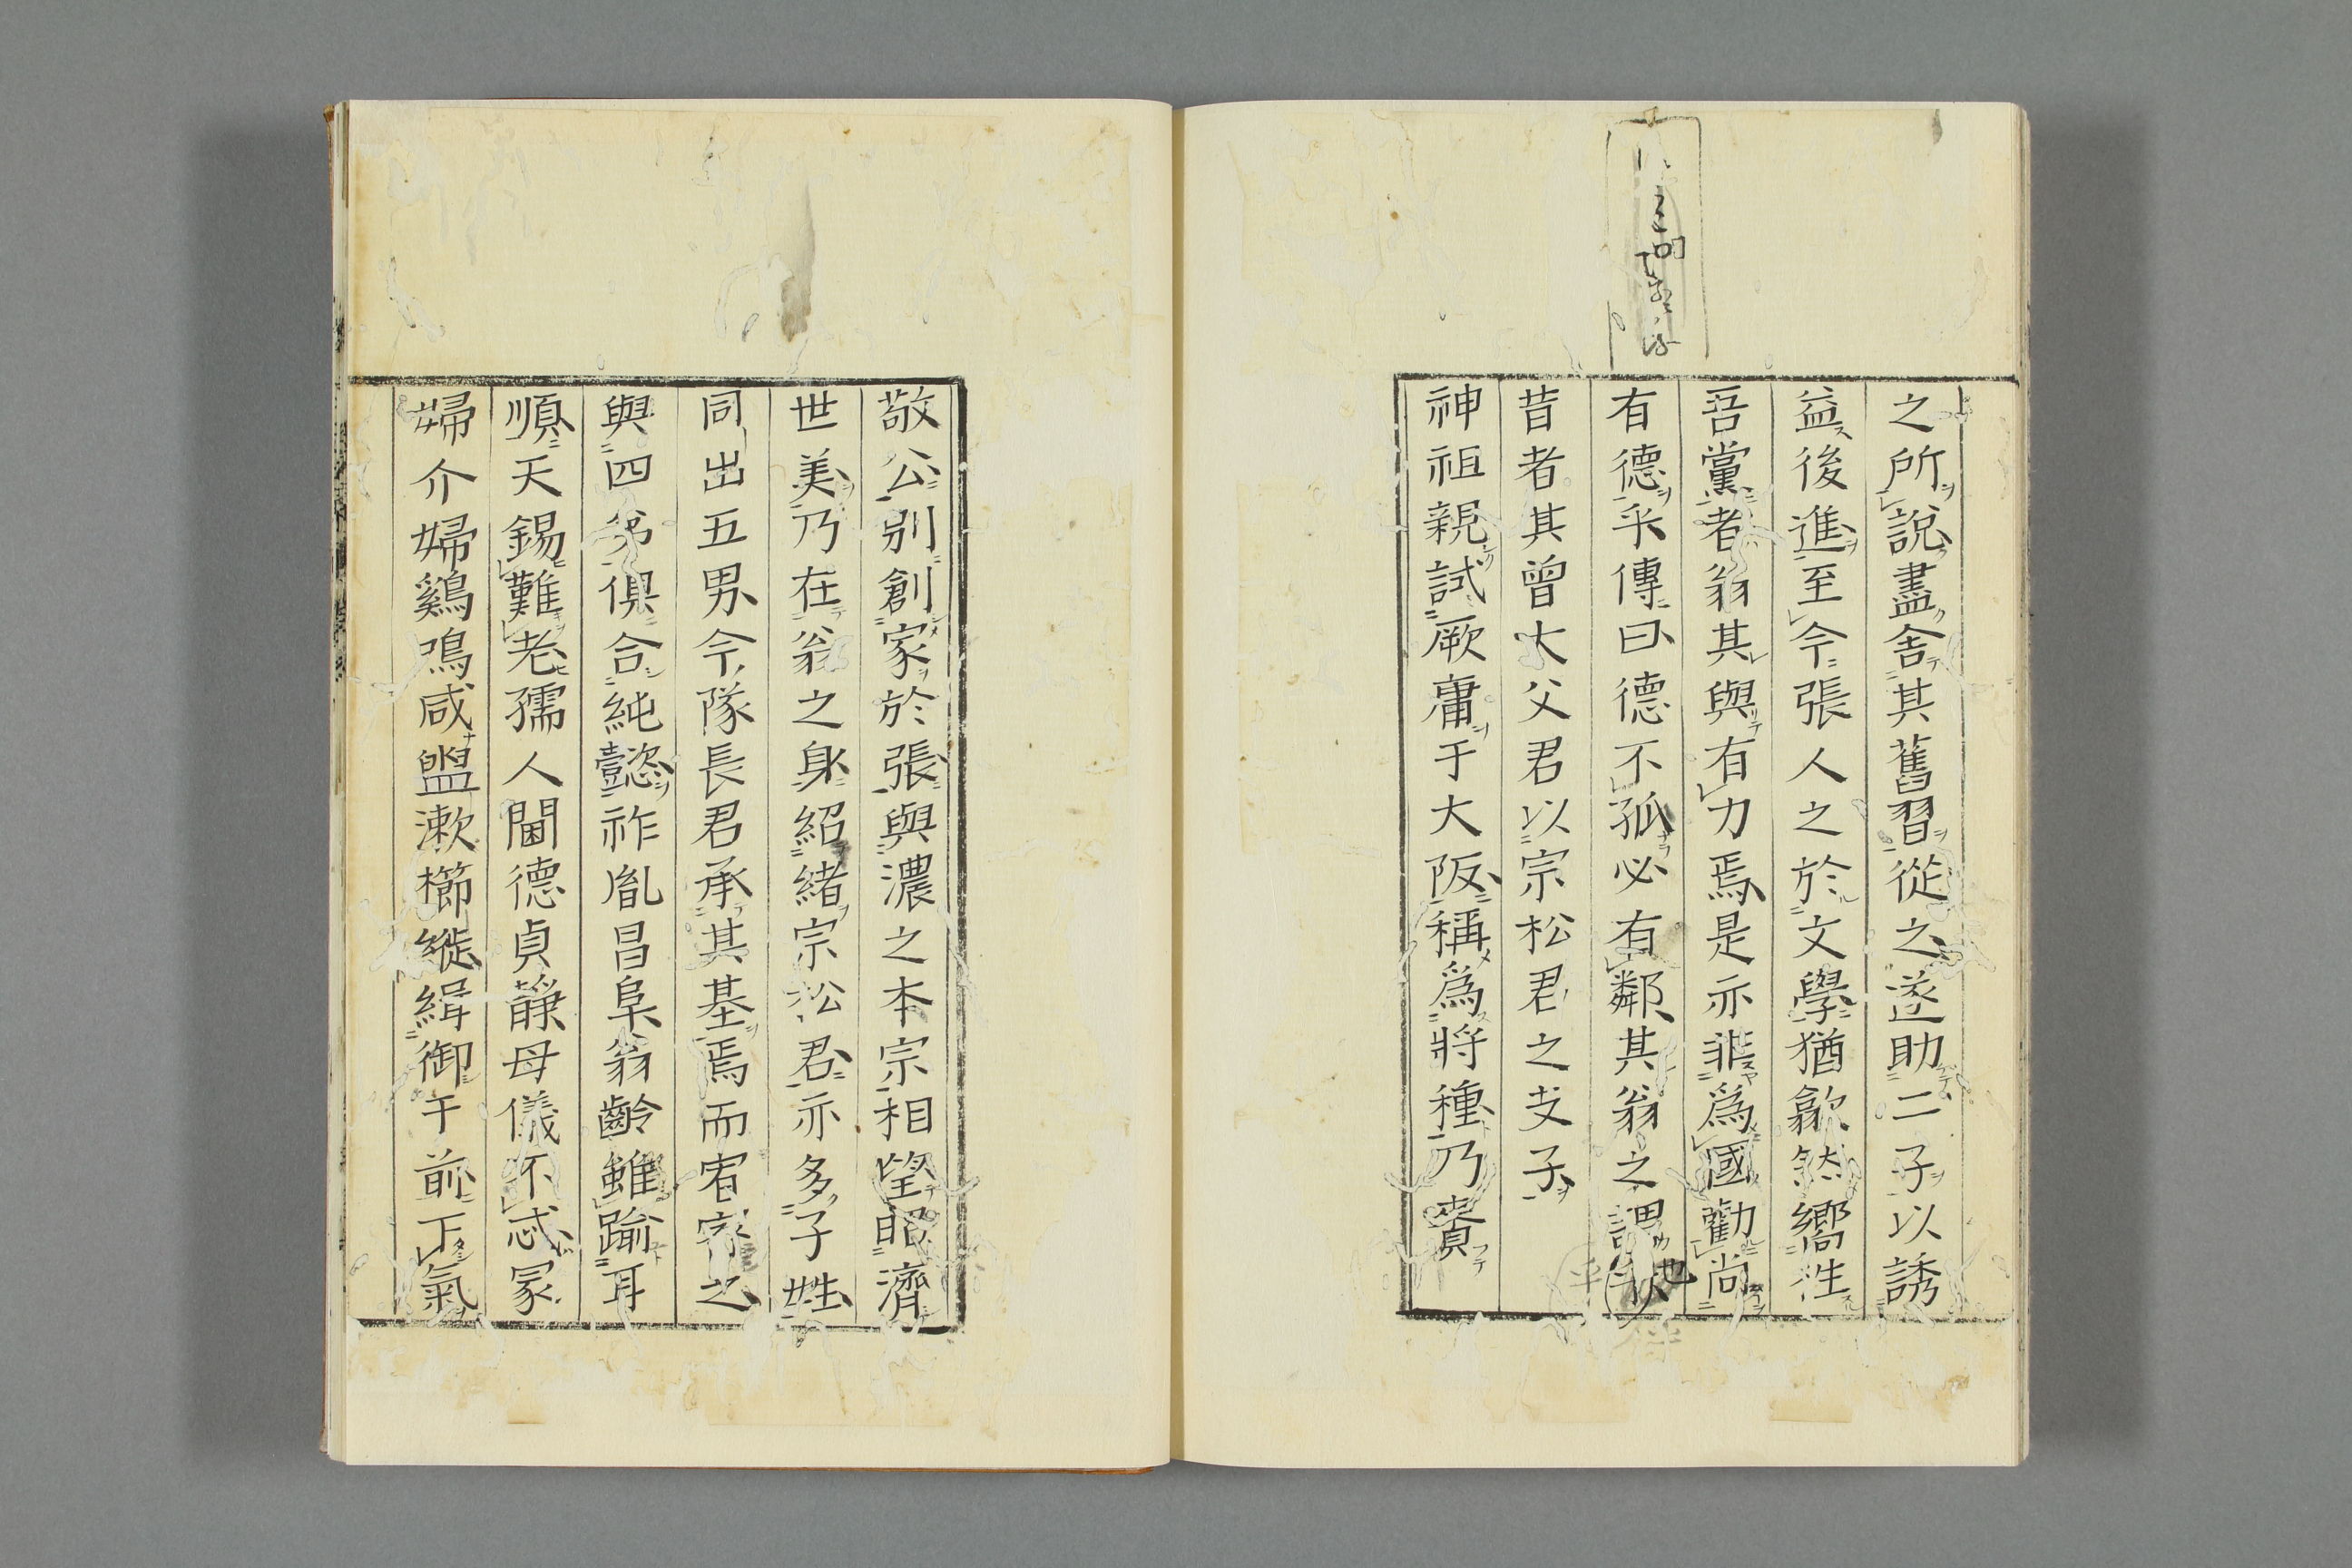 之所說盡舍其舊習從之遂助二子以誘
益後進至今張人之於文學猶歙然嚮徃
吾黨者翁其與有力焉是亦非爲國勸尚
有德乎傳曰德不孤必有鄰其翁之謂也
昔者其曾大父君以宗松君之支子
神祖親試厥庸于大阪稱爲將種乃賚
敬公別創家於張與濃之本宗相望昭濟
世美乃在翁之身紹緒宗松君亦多子姓
同出五男今隊長君承其基焉而宥家之
與四弟俱合純懿祚胤昌阜翁齡雖踰耳
順天錫難老孺人閫德貞靜母儀不忒冢
婦介婦鷄鳴咸盥漱櫛縰緝御于前下氣